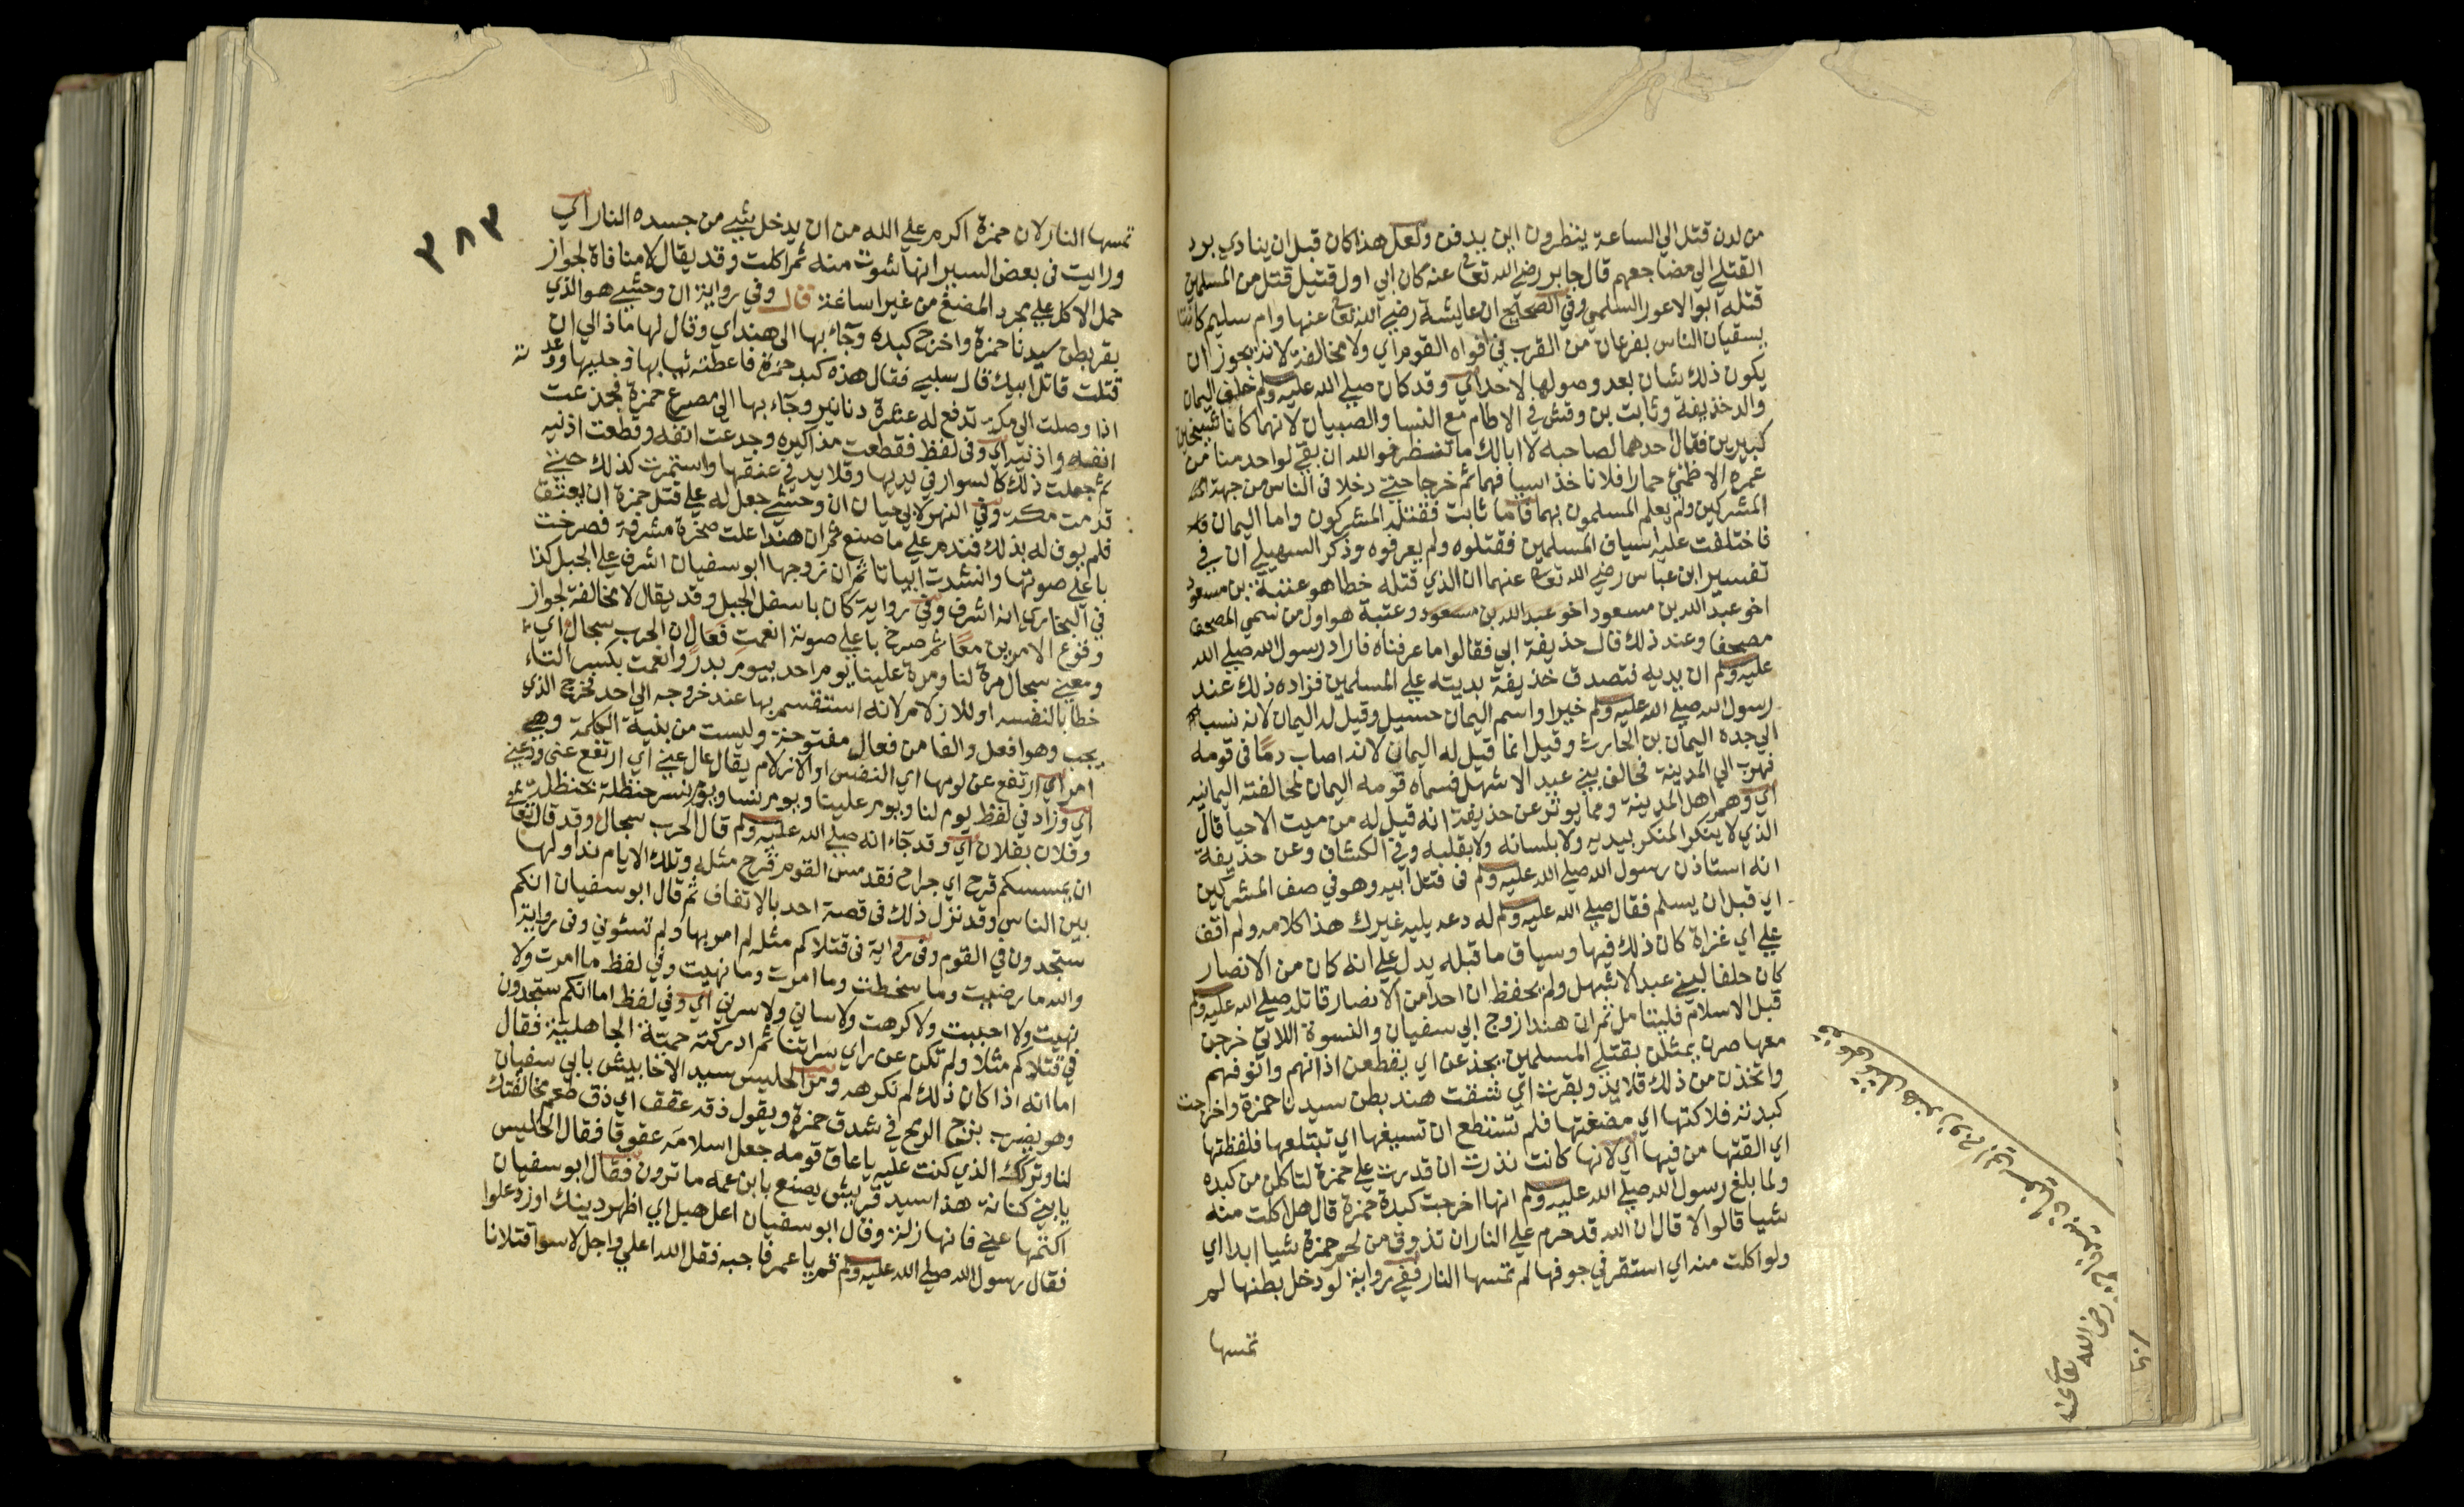 من لدن قتل الي الساعة ينظرون اين يدفن ولعل هذا كان قبل ان ينادي برد
القتلي الي مضاجعهم قال جابر رضي الله تعالى عنه كان ابي اول قتيل قتل من المسلمين
قتله ابو الاعور السلمي وفي الصحيح ان عايشة رضي الله تعالى عنها وام سليم كانتا
يسقيان الناس يفرغان من القرب في افواه القوم اي ولا مخالفة لانه يجوز ان
يكون ذلك شان بعد وصولها لاحد اي وقد كان صلي الله عليه وسلم خلف اليمان
والد حذيفة وثابت بن وقش في الاطام مع النسا والصبيان لانهما كانا شيخين
كبيرين فقال احدهما لصاحبه لا ابالك ما تنتظر فوالله ان بقي لواحد منا من
عمره الا ظمئ حمار افلا ناخذ اسيافهما ثم خرجا حتي دخلا في الناس من جهة
المشركين ولم يعلم المسلمون بهما فاما ثابت فقتله المشركون واما اليمان
فاختلفت عليه اسياف المسلمين فقتلوه ولم يعرفوه وذكر السهيلي ان في
تفسير ابن عباس رضي الله تعالى عنهما ان الذي قتله خطا هو عتبة بن مسعود
اخو عبد الله بن مسعود اخو عبد الله بن مسعود وعتبة هو اول من سمي المصحف
مصحفا وعند ذلك قال حذيفة ابي فقالوا ما عرفناه فاراد رسول الله صلي الله
عليه وسلم ان يديه فتصدق حذيفة بديته علي المسلمين فزاده ذلك عند
رسول الله صلي الله عليه وسلم خيرا واسم اليمان حسيل وقيل له اليمان لانه نسب
الي جده اليمان بن الحارث وقيل انما قيل له اليماني لانه اصاب دما في قومه
فهرب الي المدينة فحالف بني عبد الاشهل فسماه قومه اليمان لمحالفته اليمانيه
اي وهم اهل المدينة ومما يوثر عن حذيفة انه قيل له من ميت الاحيا قال
الذي لا ينكر المنكر بيديه ولا بلسانه ولا بقلبه وفي الكشاف وعن حذيفة
انه استاذن رسول الله صلي الله عليه وسلم في قتل ابيه وهو في صف المشركين
اي قبل ان يسلم فقال صلي الله عليه وسلم له دعه يليه غيرك هذا كلامه ولم اقف
علي اي غزاة كان ذلك فيها وسياق ما قبله يدل علي انه كان من الانصار
كان حلفا لبني عبد الاشهل ولم يحفظ ان احدا من الانصار قاتله صلي الله عليه وسلم
قبل الاسلام فليتامل ثم ان هندا زوج ابي سفيان والنسوة اللاتي خرجن
معها صرن يمثلن بقتلي المسلمين يجذعن اي يقطعن اذانهم وانوفهم
واتخذن من ذلك قلايد وبقرت اي شقت هند بطن سيدنا حمزة واخرجت
كبده فلاكتها اي مضغتها فلم تستطع ان تسيغها اي تبتلعها فلفظتها
اي القتها من فيها اي لانها كانت نذرت ان قدرت علي حمزة لتاكلن من كبده
ولما بلغ رسول الله صلي الله عليه وسلم انها اخرجت كبدة حمزة قال هل اكلت منه
شيا قالوا لا قال ان الله قد حرم علي النار ان تذوق من لحم حمزة شيا ابدا اي
ولو اكلت منه اي استقر في جوفها لم تمسها النار ففي رواية لو دخل بطنها لم
تمسها
رضي الله تعالى عنه
٣٨٣
تمسها النار لان حمزة اكرم علي الله من ان يدخل شي من جسده النار اي
ورايت في بعض السير انها شوت منه ثم اكلت وقد يقال لا منافاة لجواز
حمل الاكل علي مجرد المضغ من غير اساغة قال وفي رواية ان وحشي هو الذي
بقر بطن سيدنا حمزة واخرج كبده وجآء بها الي هند اي وقال لها ماذا لي ان
قتلت قاتل ابيك قال سلبي فقال هذه كبد حمزة فاعطته ثيابها وحليها ووعدته
اذا وصلت الي مكة تدفع له عشرة دنانير وجآء بها الي مصرع حمزة فجذعت
انفه واذنيه اي وفي لفظ فقطعت مذاكيره وجدعت انفه وقطعت اذنيه
ثم جعلت ذلك كالسوار في يديها وقلايد في عنقها واستمرت كذلك حتي
قدمت مكة وفي النهر لابي حيان ان وحشي جعل له علي قتل حمزة ان يعتق
فلم يوف له بذلك فندم علي ما صنع ثم ان هندا علت صخرة مشرفة فصرخت
باعلي صوتها وانشدت ابياتا ثم ان زوجها ابو سفيان اشرف علي الجبل كذا
في البخاري انه اشرف وفي رواية كان باسفل الجبل وقد يقال لا مخالفة لجواز
وقوع الامرين معا ثم صرخ باعلي صوته انعمت فعال ان الحرب سجال اي
ومعني سجال مرة لنا ومرة علينا يوم احد بيوم بدر وانعمت بكسر التاء
خطابا لنفسه او للازلام لانه استقسم بها عند خروجه الي احد فخرج الذي
يحب وهو افعل والفا من فعال مفتوحة وليست من بنية الكلمة وهي
امر اي ارتفع عن لومها اي النفس او الازلام يقال عال عني اي ارتفع عني ودعني
اي وزاد في لفظ يوم لنا ويوم علينا ويوم نسا ويوم نسر حنظلة بحنظلة
وفلان بفلان اي وقد جآء انه صلي الله عليه وسلم قال الحرب سجال وقد قال تعالى
ان يمسسكم قرح اي جراح فقد مس القوم قرح مثله وتلك الايام نداولها
بين الناس وقد نزل ذلك في قصة احد بالاتفاق ثم قال ابو سفيان انكم
ستجدون في القوم وفي رواية في قتلاكم مثله لم امر بها ولم تسوني وفي رواية
والله ما رضيت وما سخطت وما امرت وما نهيت وفي لفظ ما امرت ولا
نهيت ولا احببت ولا كرهت ولا ساني ولا سرني اي وفي لفظ اما انكم ستجدون
في قتلاكم مثلا ولم تكن عن راي سراتنا ثم ادركته حمية الجاهلية فقال
اما انه اذا كان ذلك لم نكرهه ومر الحليس سيد الاحابيش بابي سفيان
وهو يضرب بزج الرمح في شدق حمزة ويقول ذق عقق اي ذق طعم مخالفتك
لنا وتركك الذي كنت عليه يا عاق قومه جعل اسلامه عقوقا فقال الحليس
يا بني كنانة هذا سيد قريش يصنع بابن عمه ما ترون فقال ابو سفيان
اكتمها عني فانها زلة وقال ابو سفيان اعل هبل اي اظهر دينك او زد علوا
فقال رسول الله صلي الله عليه وسلم قم يا عمر فاجبه فقل الله اعلي واجل لا سوا قتلانا